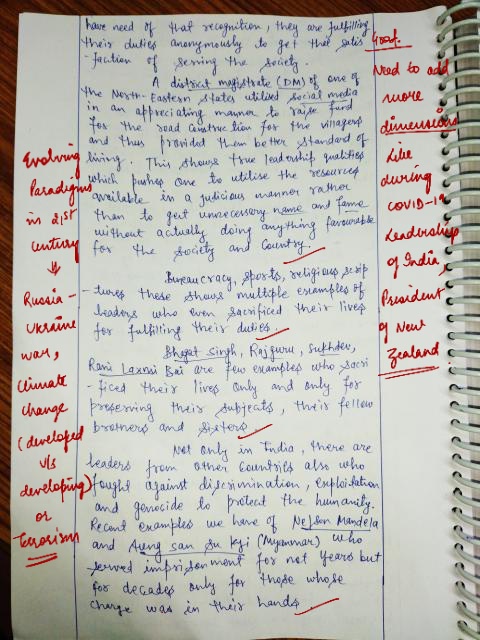 have need of that recognition, they are fulfilling
their duties anonymously to get that satis
-faction of serving the society.
A district magistrate (DM) of one of
the North-Eastern states utilised social media
in an appreciating manner to raise fund
for the road construction for the villagers
and thus provided them better standard of
living. This shows true leadership qualities
which pushes one to utilise the resources
available in a judicious manner rather
than to get unnecessary name and fame
without actually doing anything favourable
for the society and Country.
Bureaucracy, sports, religious scrip
-tures these shows multiple examples of
leaders who even sacrificed their lives
for fulfilling their duties.
Bhagat Singh, Rajguru, Sukhdev,
Rani Laxmi Bai are few examples who sacri
-ficed their lives only and only for
preserving their subjects, their fellow
brothers and sisters.
Not only in India, there are
leaders from other Countries also who
fought against discrimination, exploitation
and genocide to protect the humanity.
Recent examples we have of Nelson Mandela
and Aung san su kyi (Myanmar) who
served imprisonment for not years but
for decades only for those whose
charge was in their hands.
Evolving
Paradigms
in 21st
century
↓
Russia-
Ukraine
war,
Climate
change
(developed
v/s
developing)
or
Terrorism
Good.
Need to add
more
dimensions
Like
during
COVID-19
Leadership
of India,
President
of New
Zealand